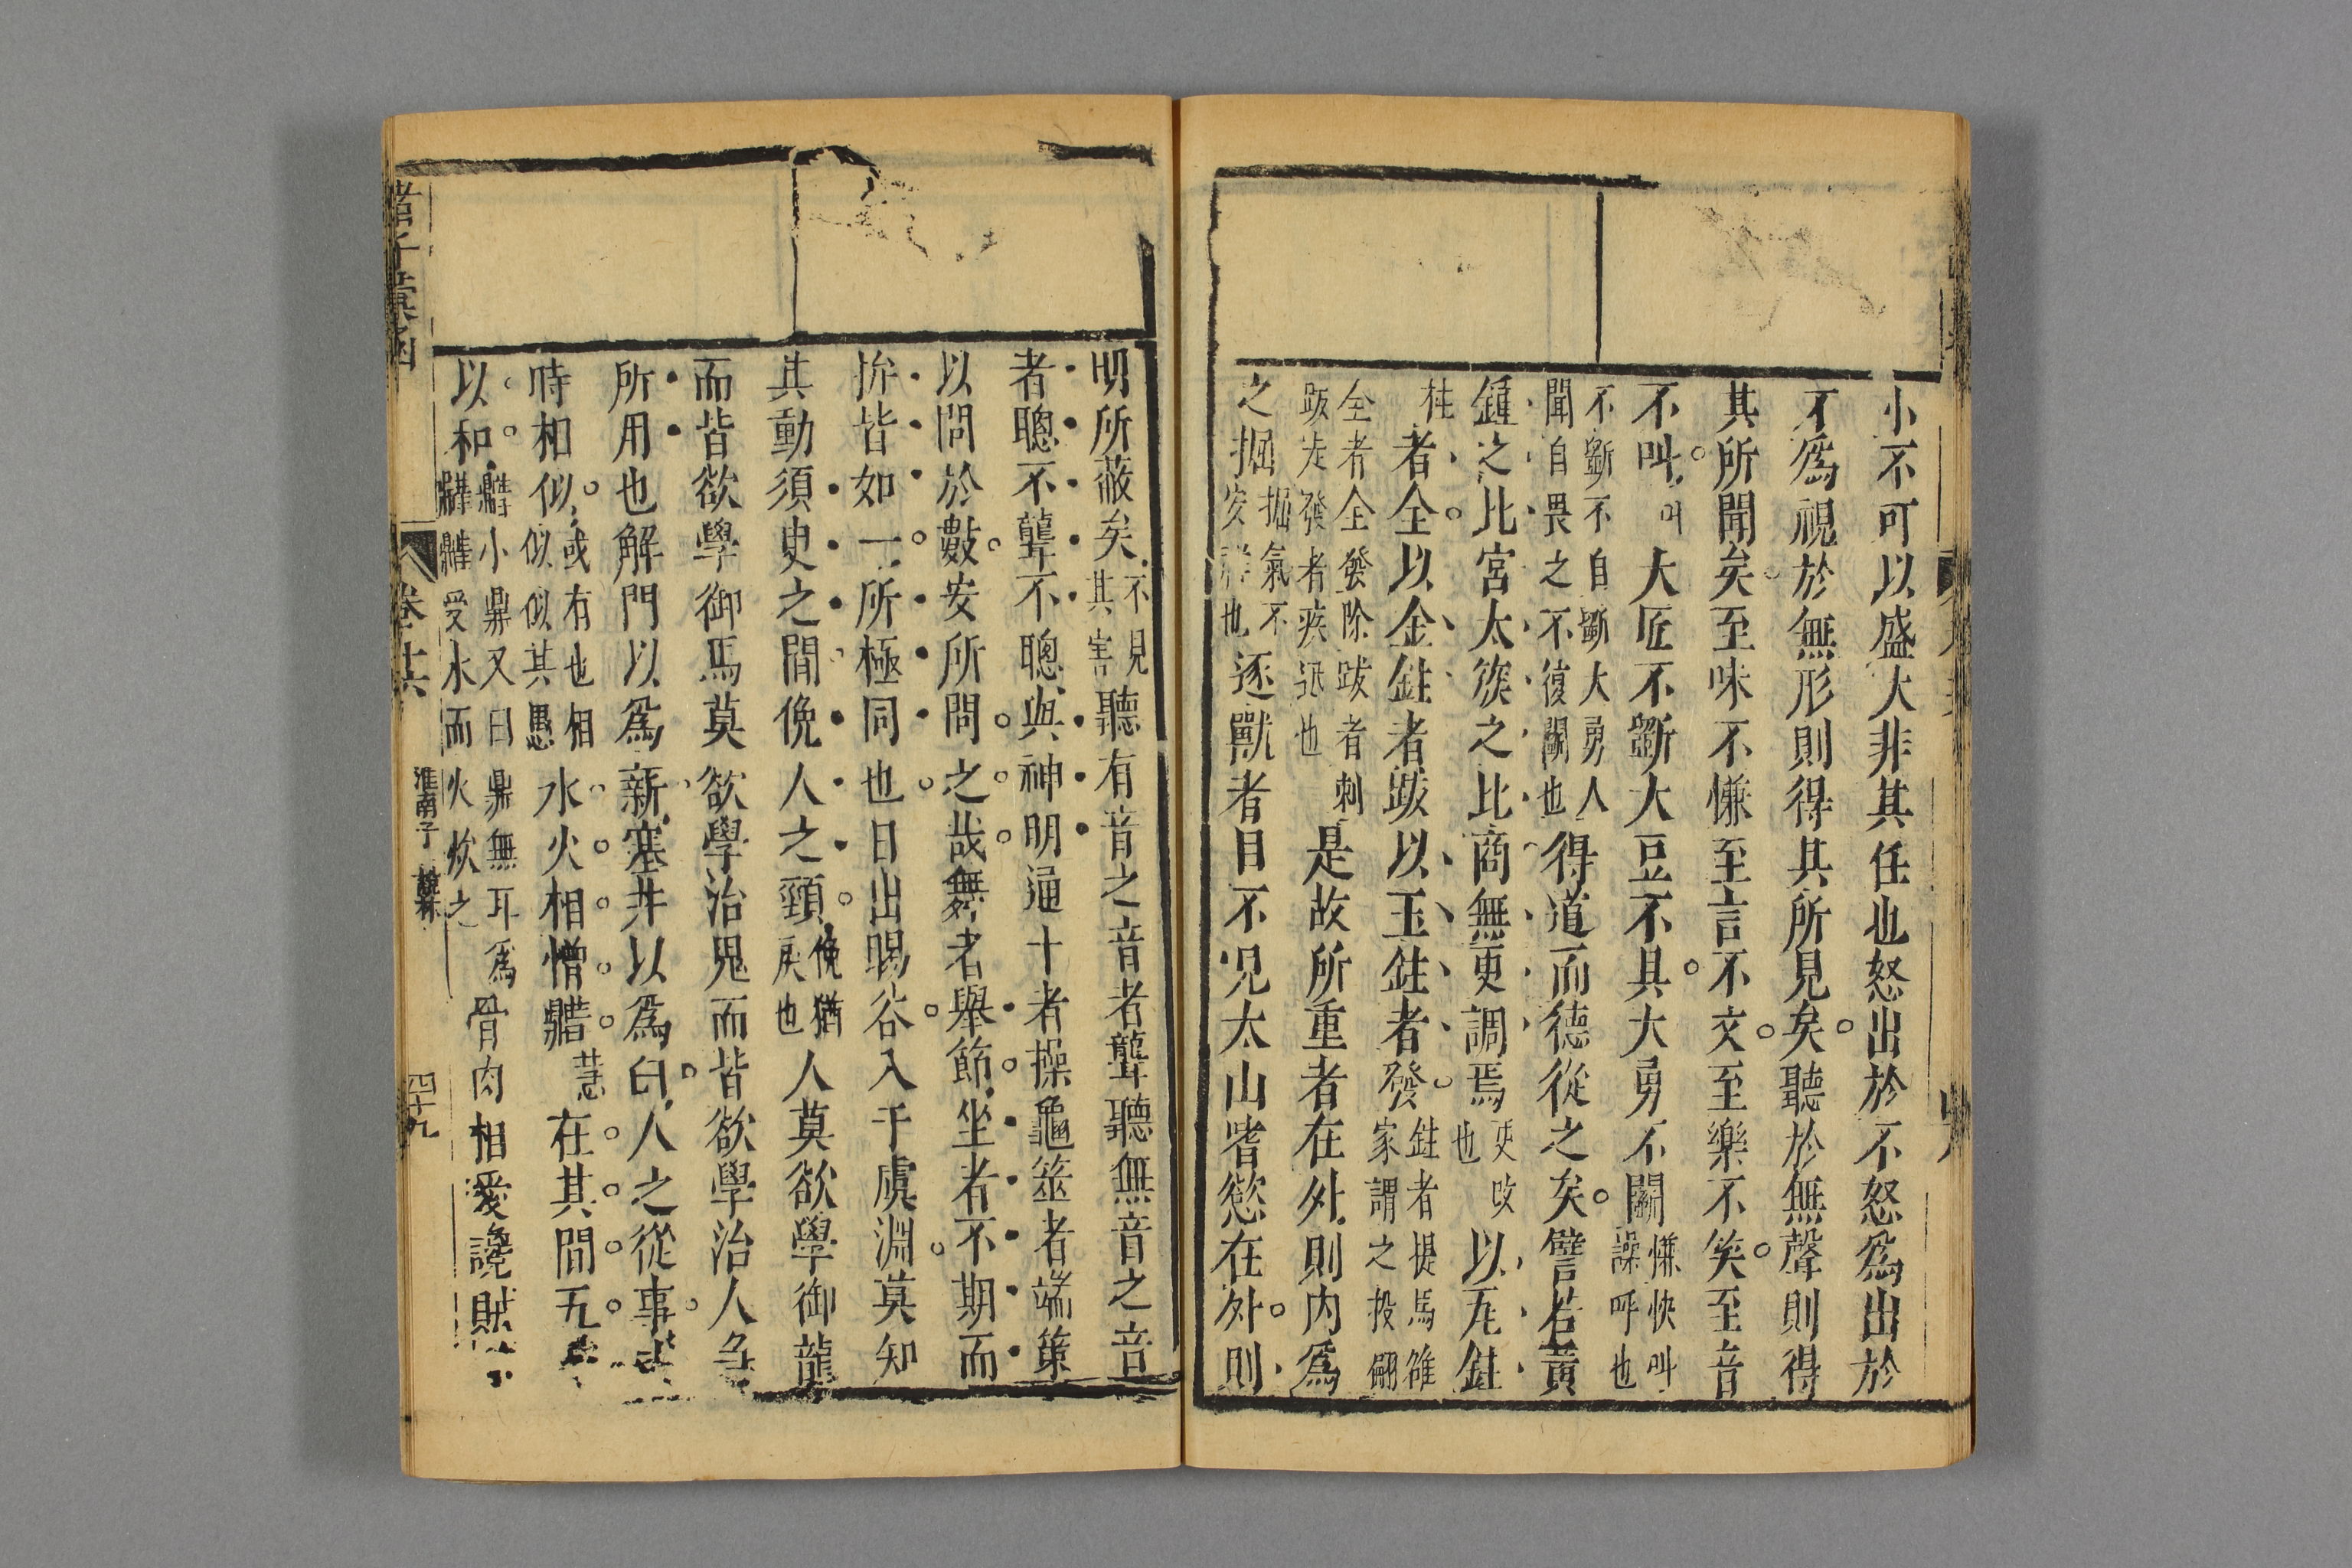 小不可以盛大非其任也怒出於不怒爲出於
不爲視於無形則得其所見矣聽於無聲則得
其所聞矣至味不慊至言不文至樂不笑至音
不叫叫大匠不斲大豆不具大勇不鬬慊快叫譟呼也
不斲不自斲大勇人聞自畏之不復鬬也得道而德從之矣譬若黃
鍾之比宮太簇之比商無更調焉更改也以瓦鉒
者全以金鉒者跋以玉鉒者發鉒者提馬雒家謂之投翩
全者全發除跋者刺跋走發者疾迅也是故所重者在外則內爲
之掘掘氣不安詳也逐獸者目不見太山嗜慾在外則
明所蔽矣不見其害聽有音之音者聾聽無音之音
者聰不聾不聰與神明通卜者操龜筮者端策
以問於數安所問之哉舞者舉節坐者不期而
拚皆如一所極同也日出暘谷入于虞淵莫知
其動須臾之間俛人之頸俛猶戾也人莫欲學御龍
而皆欲學御馬莫欲學治鬼而皆欲學治人急
所用也解門以爲新塞井以爲臼人之從事或
時相似或有也相似似似其愚水火相憎䥶慧在其間五
以和䥶小鼎又曰鼎無耳爲䥶䥶受水而火炊之骨肉相愛讒賊
卷十六
淮南子
四十九